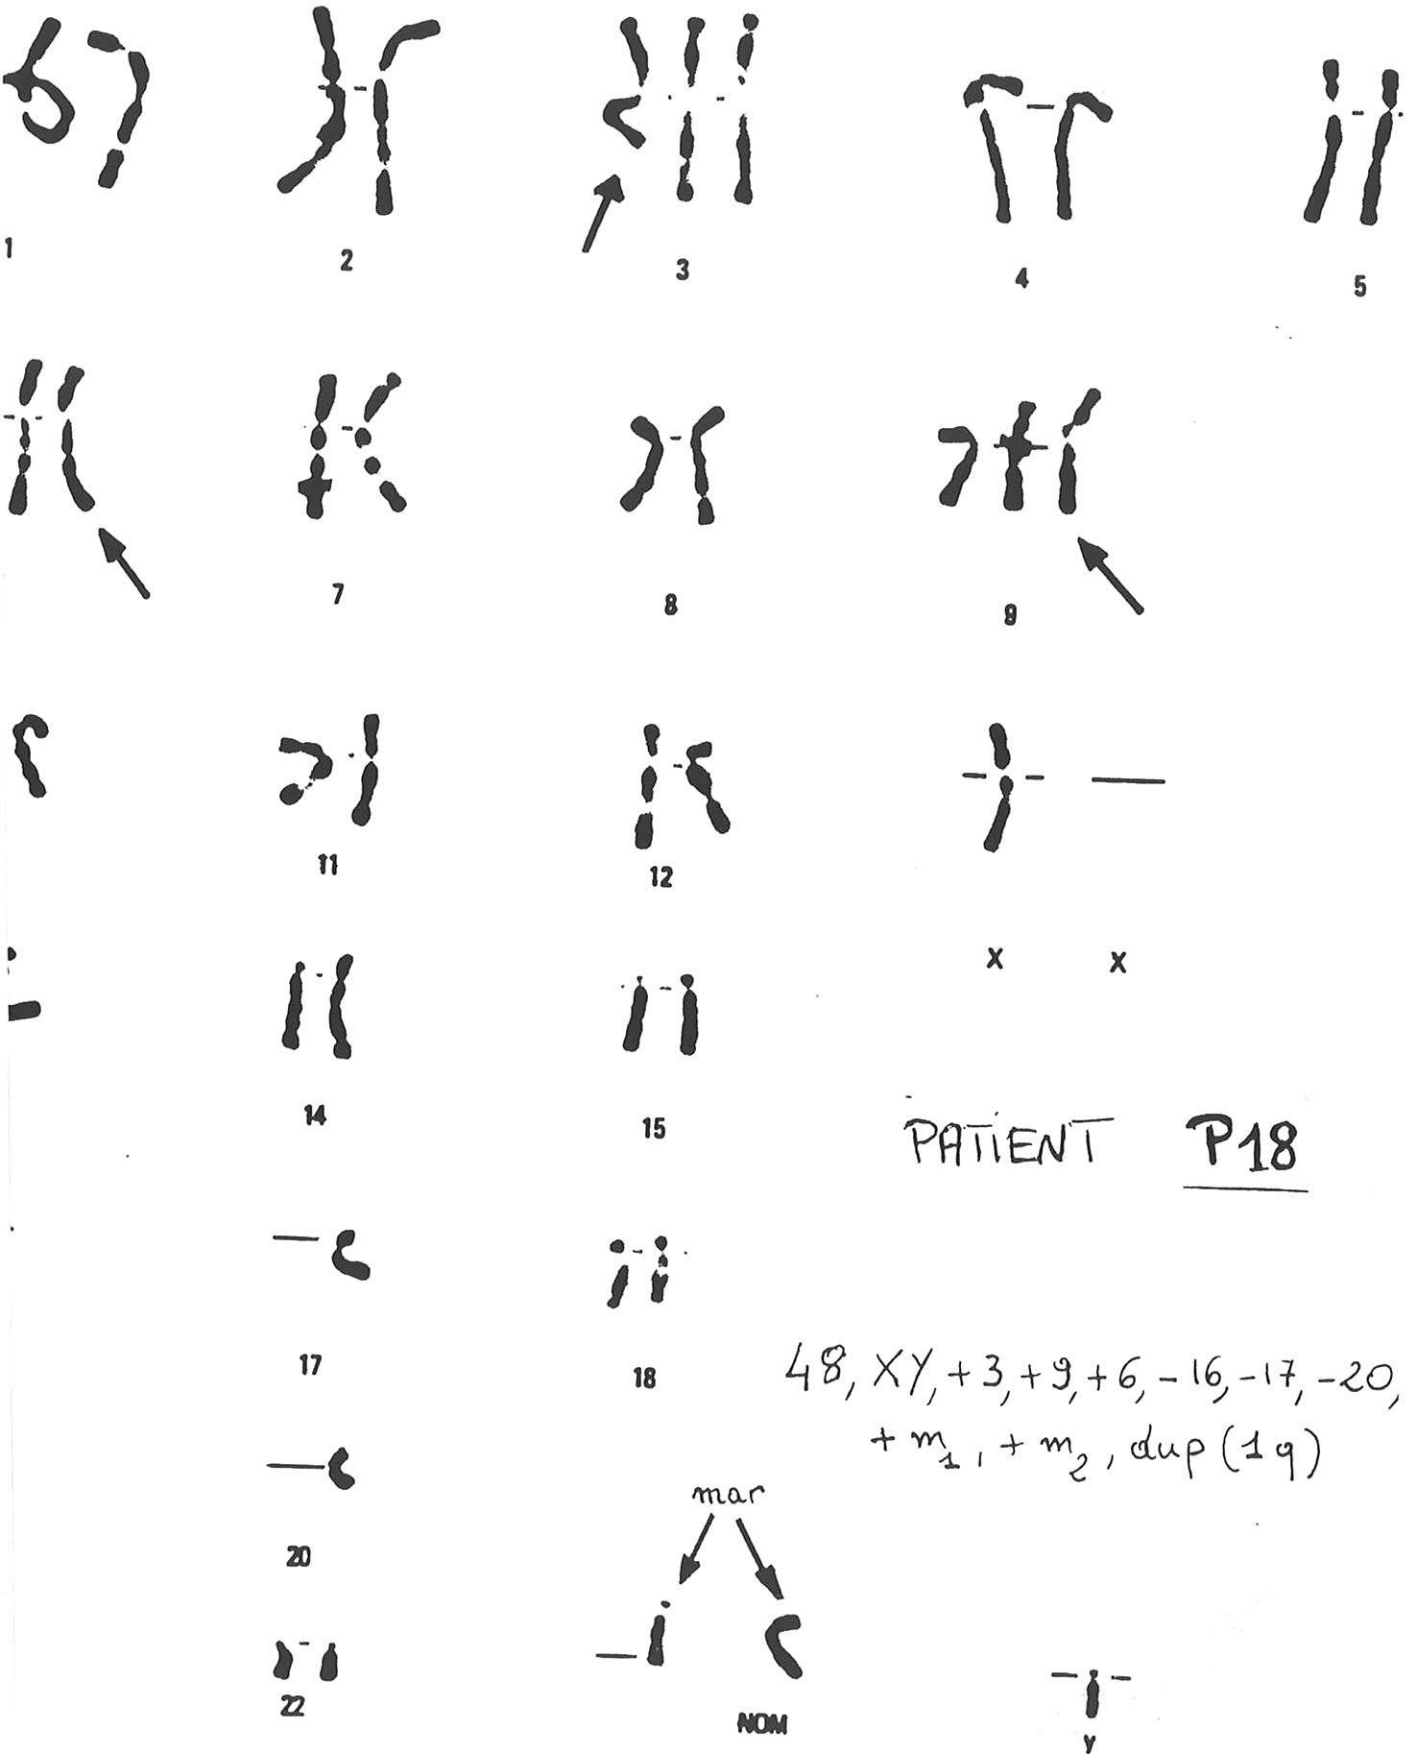 1 2 3 4 5
7 8 9
11 12
X X
14 15
PATIENT P18
17 18
48, XY, +3, +9, +6, -16, -17, -20,
+ m1, + m2, dup (1q)
mar
20
22
NOM
y